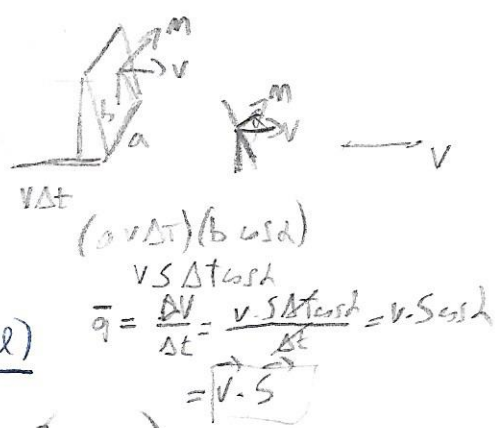 m
v
b
a
vΔt
m
α
v
v
(a vΔt)(b cosα)
v S Δt cosα
q̄ = ΔV/Δt = v·SΔt cosα/Δt = v·S cosα
l)
= v⃗·S⃗